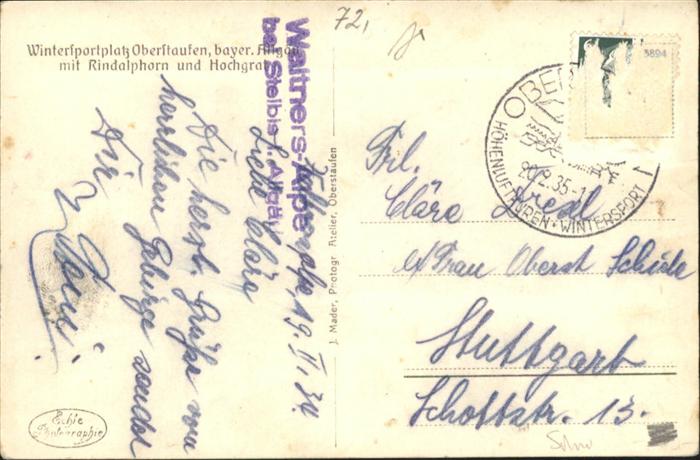 Wintersportplatz Oberstaufen, bayer. Allgäu
mit Rindalphorn und Hochgrat
72,
Waltners-Alpe
bei Steibis i. Allgäu
19. II. 34.
Liebe Cläre
Die herzl. Grüße vom
herrlichen Gebirge sendet
Dir
J. Mader, Photogr. Atelier, Oberstaufen
Echte
Photographie
5894
OBER
20.2.35-1
HÖHENLUFTKUREN + WINTERSPORT
Frl.
Cläre
Frau Oberst
Stuttgart
Schottstr. 13.